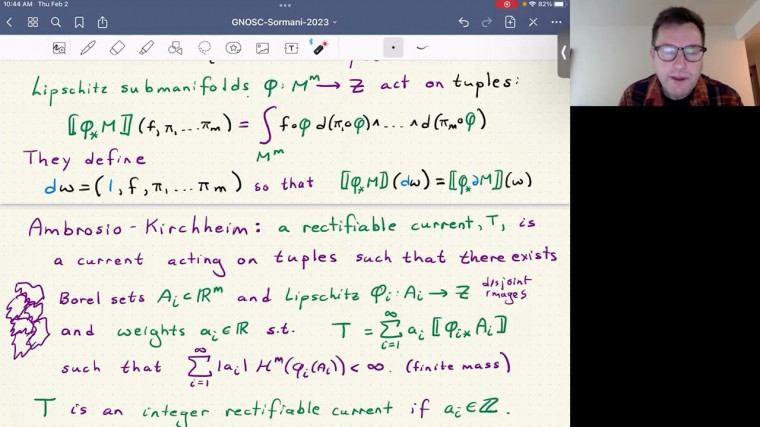 10:44 AM Thu Feb 2
GNOSC-Sormani-2023
82%
Lipschitz submanifolds φ: Mᵐ → Z act on tuples:
⟦φ_* M⟧(f, π₁ ... πₘ) = ∫_{Mᵐ} f∘φ d(π₁∘φ) ∧ ... ∧ d(πₘ∘φ)
They define
dω = (1, f, π₁ ... πₘ) so that ⟦φ_* M⟧(dω) = ⟦φ_* ∂M⟧(ω)
Ambrosio-Kirchheim: a rectifiable current, T, is
a current acting on tuples such that there exists
Borel sets Aᵢ ⊂ ℝᵐ and Lipschitz φᵢ: Aᵢ → Z disjoint images
and weights aᵢ ∈ ℝ s.t. T = ∑_{i=1}^∞ aᵢ ⟦φᵢ_* Aᵢ⟧
such that ∑_{i=1}^∞ |aᵢ| Hᵐ(φᵢ(Aᵢ)) < ∞. (finite mass)
T is an integer rectifiable current if aᵢ ∈ ℤ.